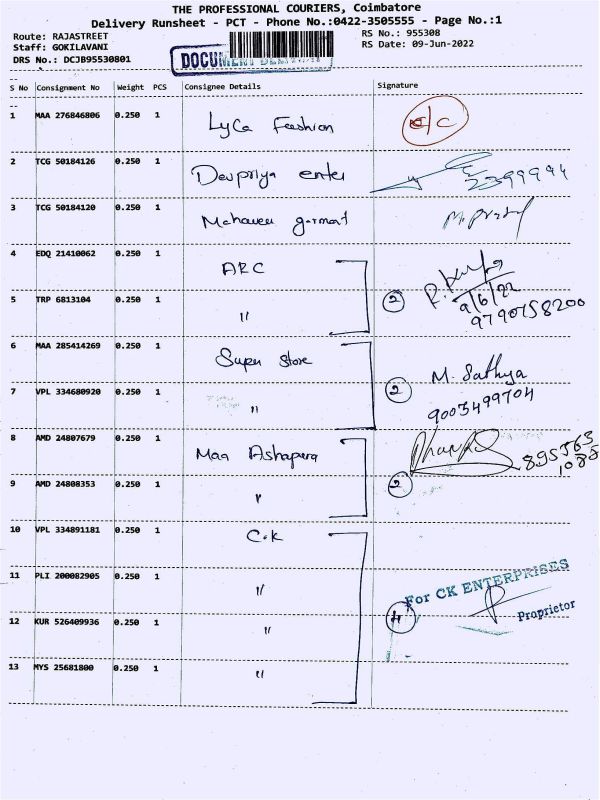 THE PROFESSIONAL COURIERS, Coimbatore
Delivery Runsheet - PCT - Phone No.:0422-3505555 - Page No.:1
Route: RAJASTREET
RS No.: 955308
Staff: GOKILAVANI
RS Date: 09-Jun-2022
DRS No.: DCJB95530801
DOCUMENT
S No Consignment No Weight PCS Consignee Details Signature
1 MAA 276846806 0.250 1 Lyca Fashion
2 TCG 50184126 0.250 1 Devpriya enter 2399994
3 TCG 50184120 0.250 1
4 EDQ 21410062 0.250 1 ARC
9/6/22
5 TRP 6813104 0.250 1 〃 2 9790758200
6 MAA 285414269 0.250 1 Super Store M. Sathya
7 VPL 334680920 0.250 1 〃 2 9003499704
8 AMD 24807679 0.250 1 Maa Ashapura 895363
1088
9 AMD 24808353 0.250 1 〃 2
10 VPL 334891181 0.250 1 C.K
11 PLI 200082905 0.250 1 〃 For CK ENTERPRISES
12 KUR 526409936 0.250 1 〃 4 Proprietor
13 MYS 25681800 0.250 1 〃